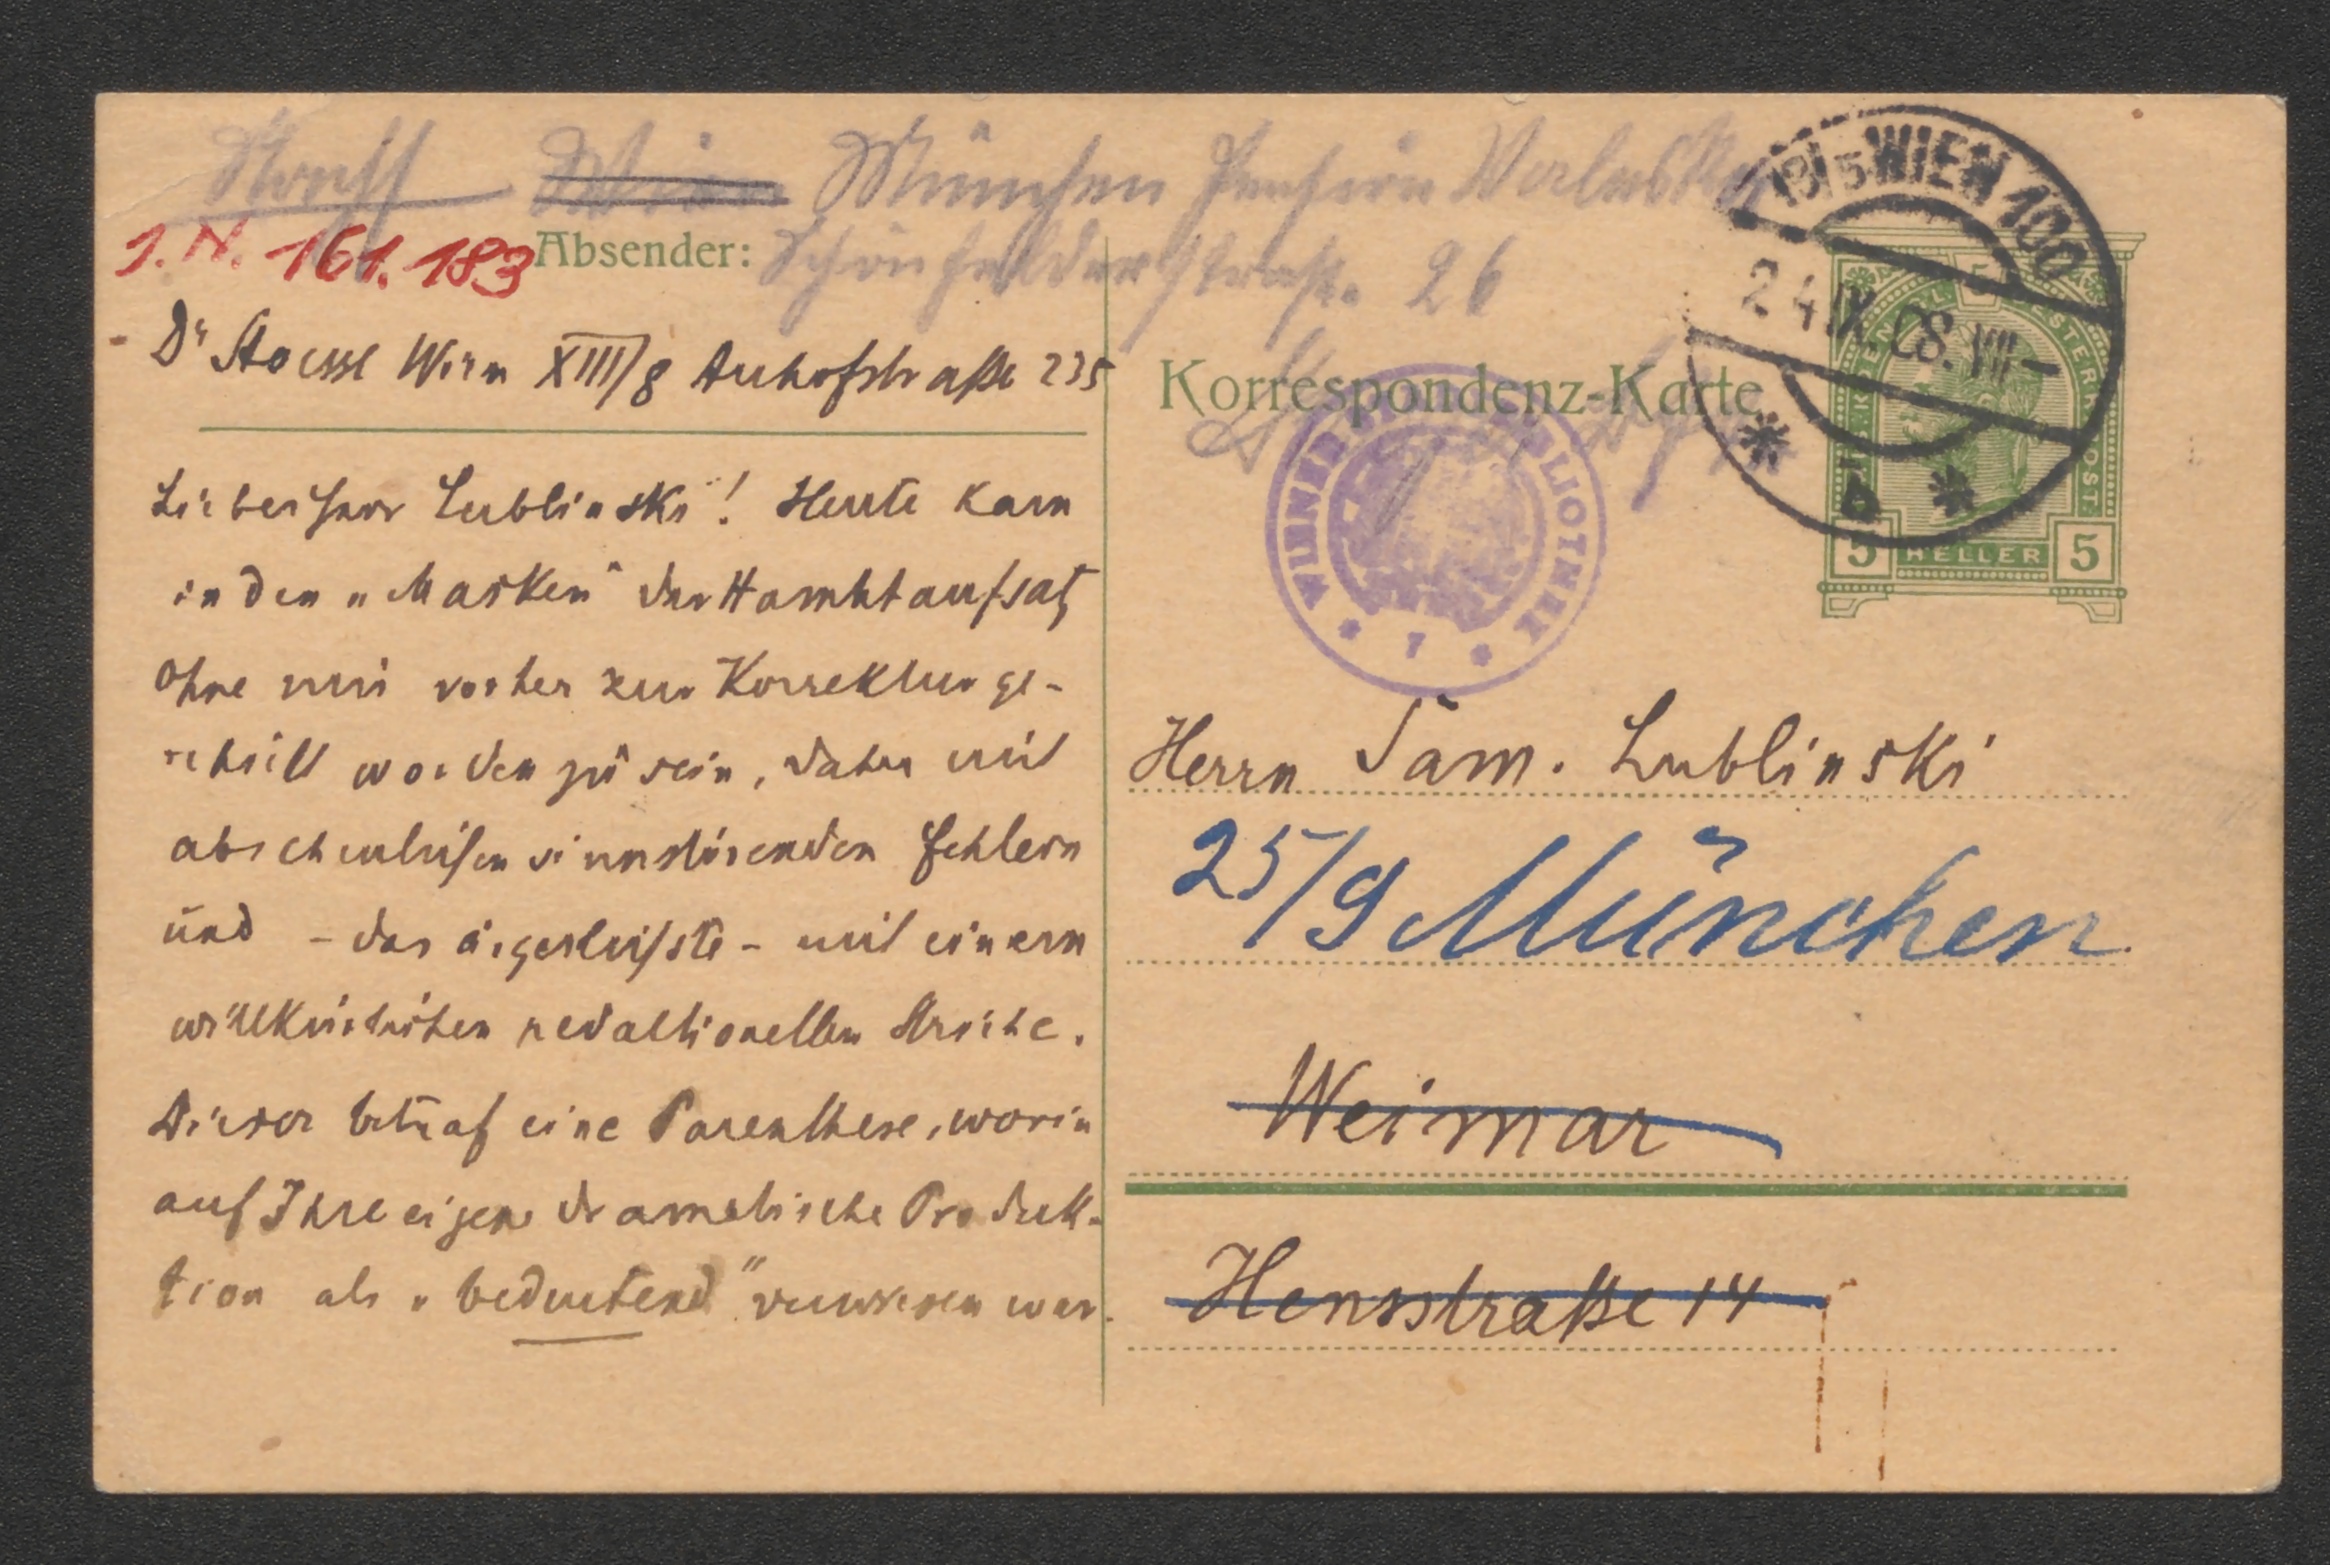 München Pension
J. N. 161.183
Absender:
Schönfelderstraße. 26
Dr Stoessl Wien XIII/8 Auhofstraße 235
Lieber Herr Lublinski! Heute kam
in den „Masken" der Hamletaufsatz
ohne mir vorher zur Korrektur ge-
schickt worden zu sein, daher mit
abscheulichen sinnstörenden Fehlern
und – das ärgerlichste – mit einem
willkürlichen redaktionellen Striche.
Dieser betraf eine Parenthese, worin
auf Ihre eigene dramatische Produk-
tion als „bedeutend" verwiesen war.
Korrespondenz-Karte
18/5 WIEN 100
24.IX.08.VII–
b
5
5 HELLER 5
WIENER BIBLIOTHEK
* 7 *
Herrn Sam. Lublinski
25/9 München
Weimar
Hensstraße 14